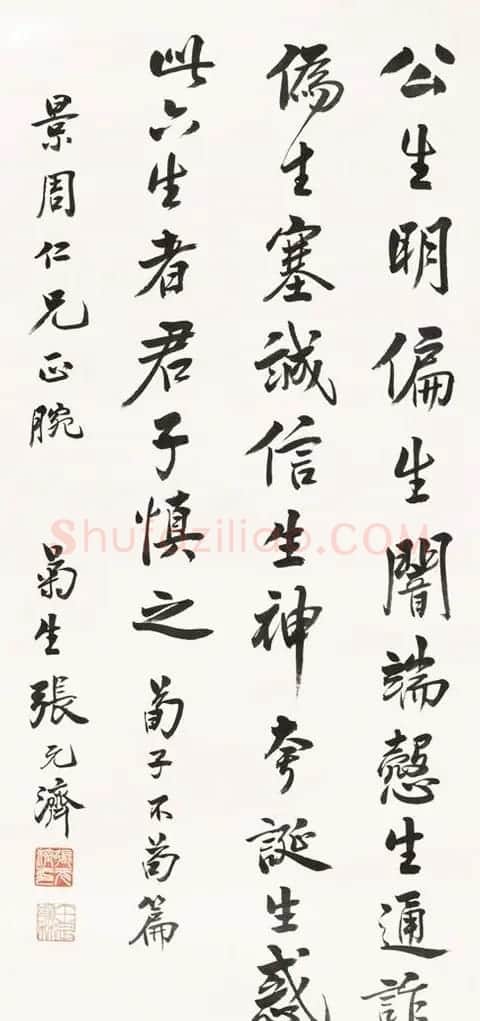 公生明偏生闇端愨生通詐
偽生塞誠信生神夸誕生惑
此六生者君子慎之 荀子不苟篇
景周仁兄正腕 菊生張元濟
Shufaziliao.COM